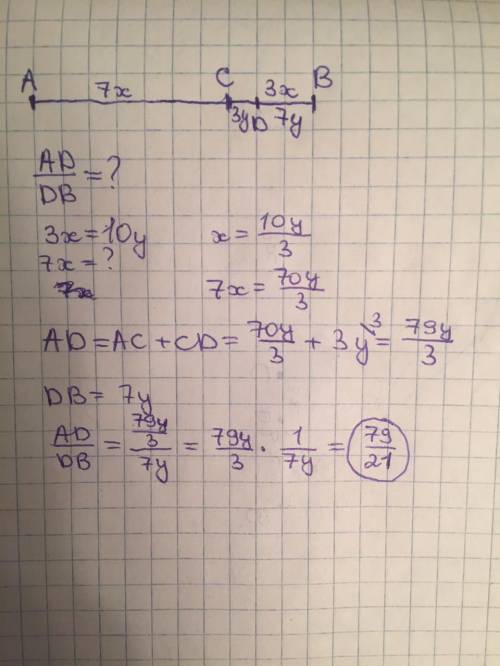 A 7x C 3x B
3y D 7y
AD/DB = ?
3x = 10y x = 10y/3
7x = ?
7x = 70y/3
AD = AC + CD = 70y/3 + 3y^3 = 79y/3
DB = 7y
AD/DB = (79y/3)/7y = 79y/3 · 1/7y = 79/21